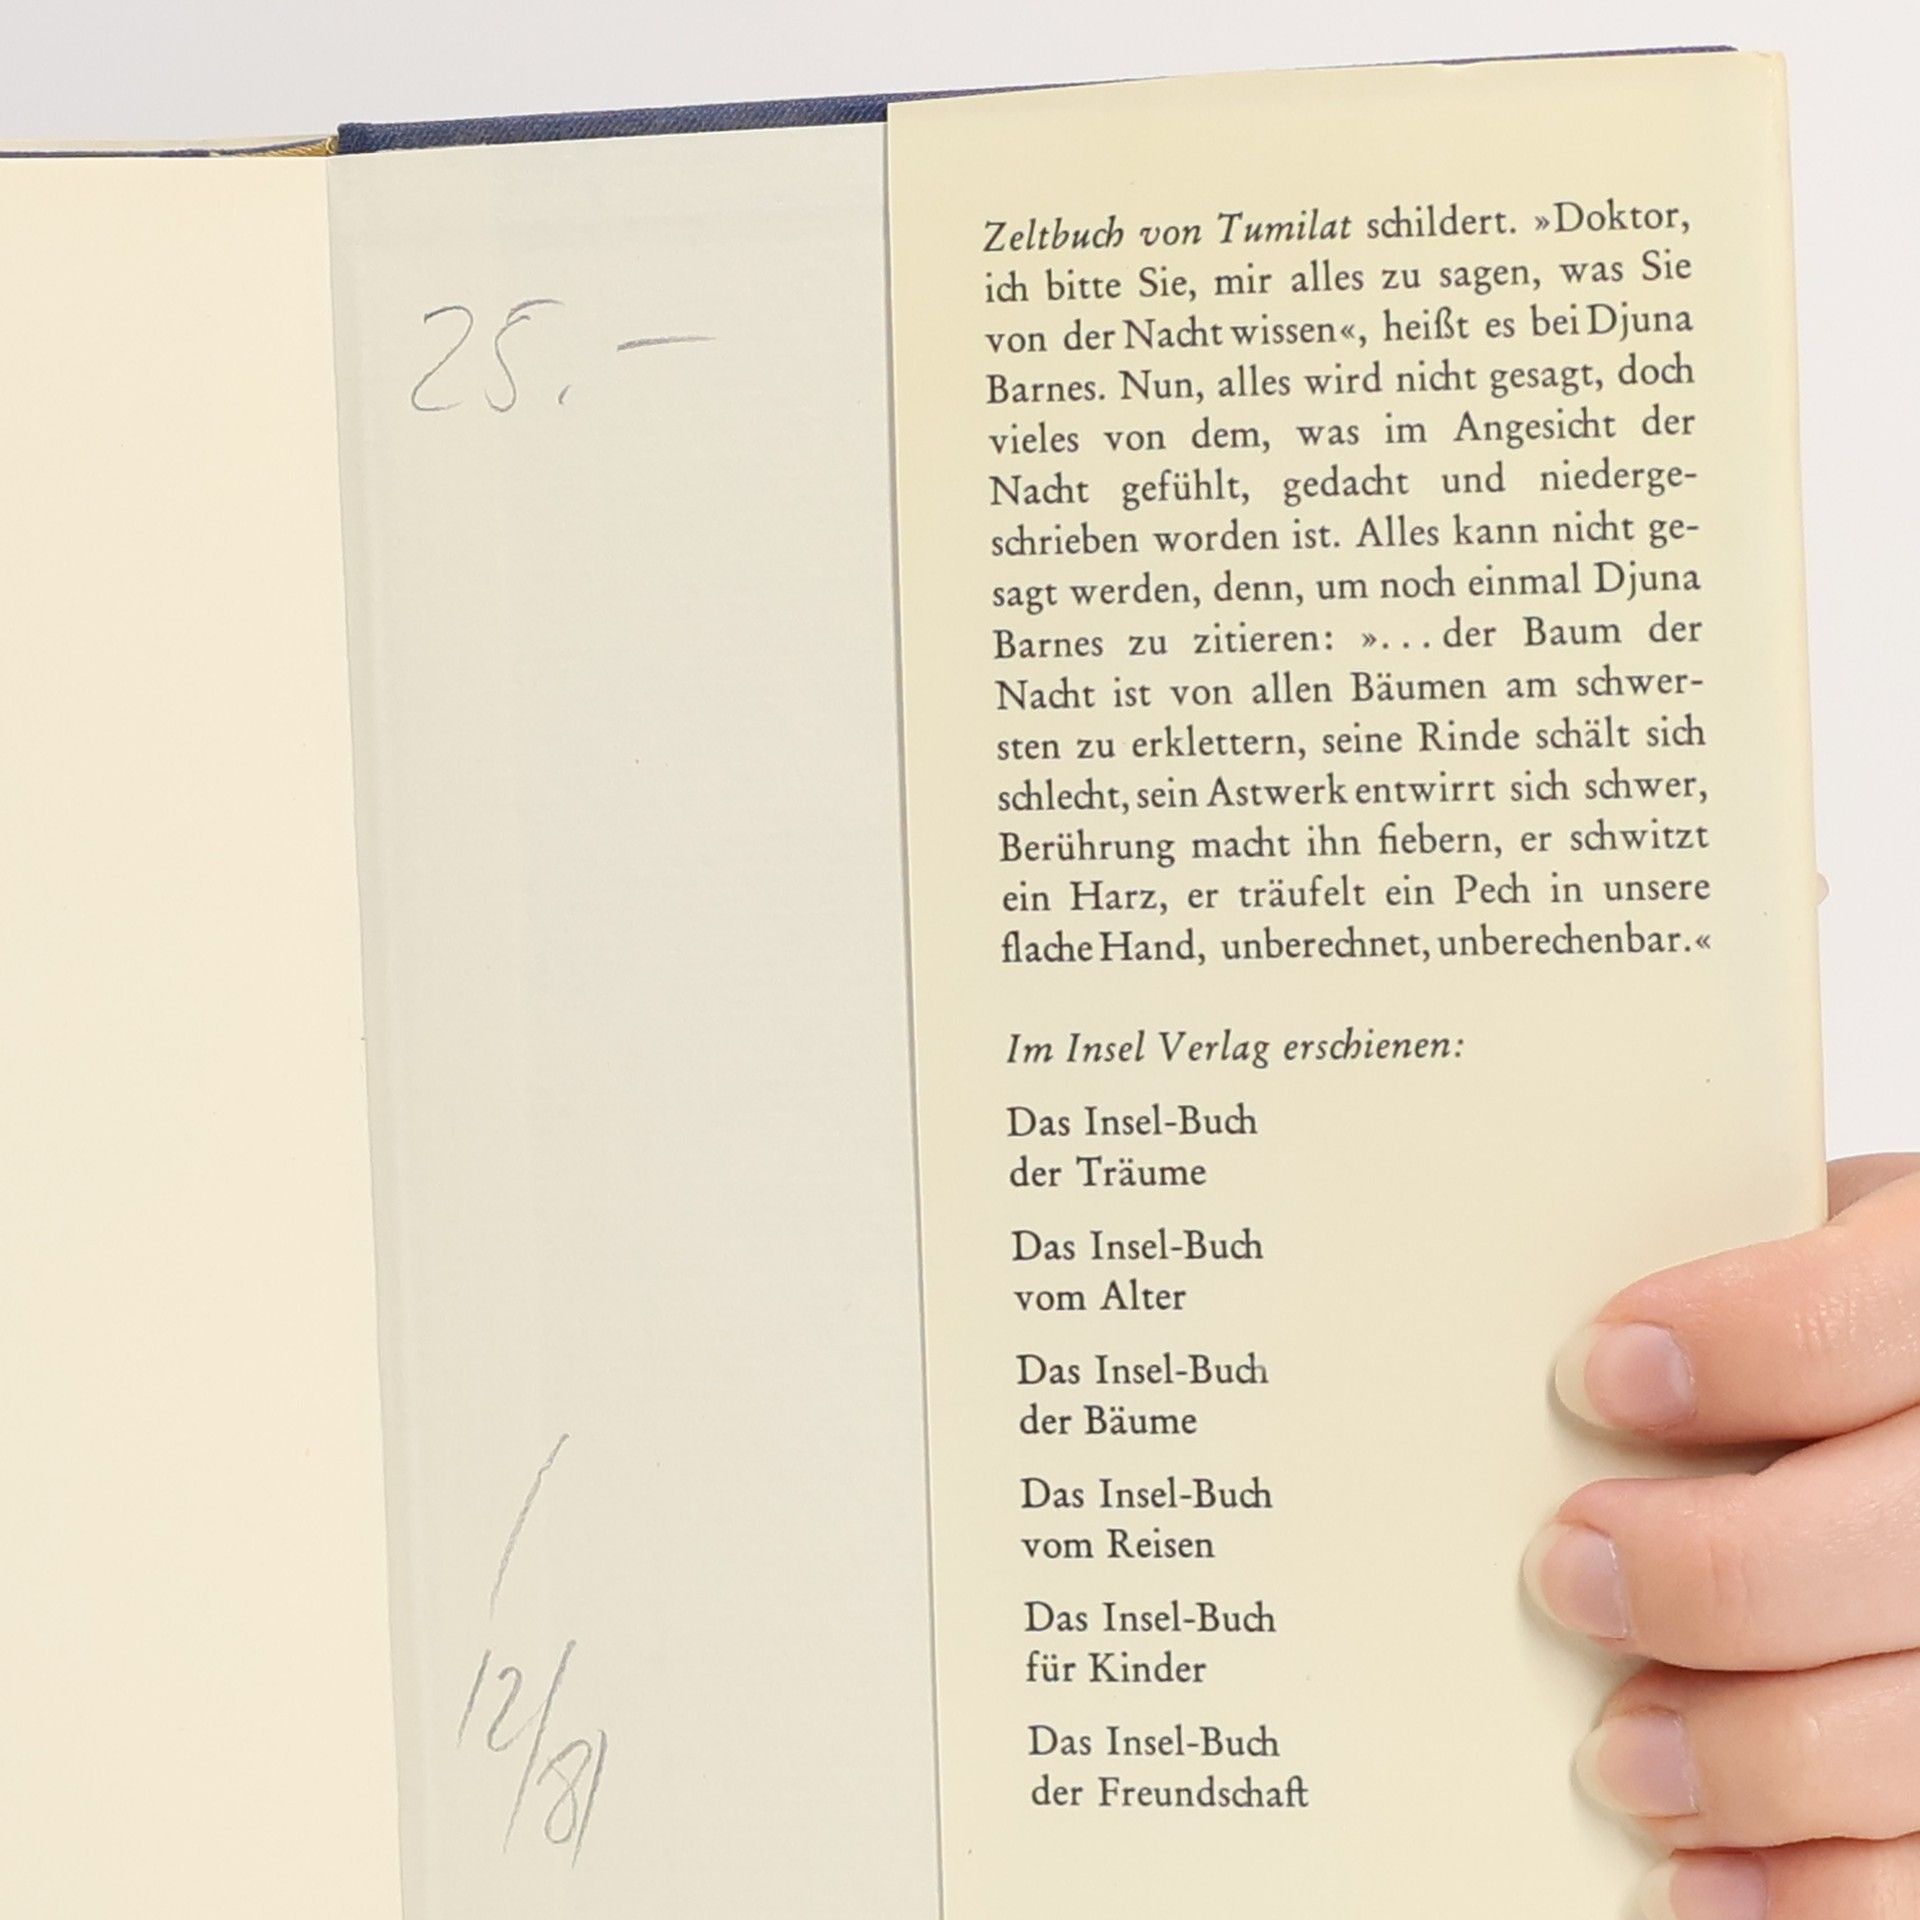 25.—
/
12/81
Zeltbuch von Tumilat schildert. »Doktor,
ich bitte Sie, mir alles zu sagen, was Sie
von der Nacht wissen«, heißt es bei Djuna
Barnes. Nun, alles wird nicht gesagt, doch
vieles von dem, was im Angesicht der
Nacht gefühlt, gedacht und niederge-
schrieben worden ist. Alles kann nicht ge-
sagt werden, denn, um noch einmal Djuna
Barnes zu zitieren: »... der Baum der
Nacht ist von allen Bäumen am schwer-
sten zu erklettern, seine Rinde schält sich
schlecht, sein Astwerk entwirrt sich schwer,
Berührung macht ihn fiebern, er schwitzt
ein Harz, er träufelt ein Pech in unsere
flache Hand, unberechnet, unberechenbar.«
Im Insel Verlag erschienen:
Das Insel-Buch
der Träume
Das Insel-Buch
vom Alter
Das Insel-Buch
der Bäume
Das Insel-Buch
vom Reisen
Das Insel-Buch
für Kinder
Das Insel-Buch
der Freundschaft